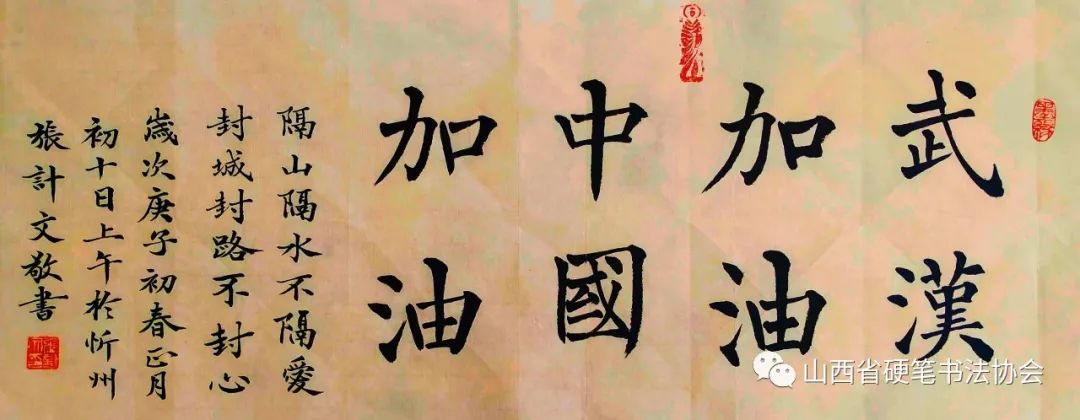 武漢
加油
中國
加油
隔山隔水不隔愛
封城封路不封心
歲次庚子初春正月
初十日上午於忻州
張計文敬書
山西省硬笔书法协会